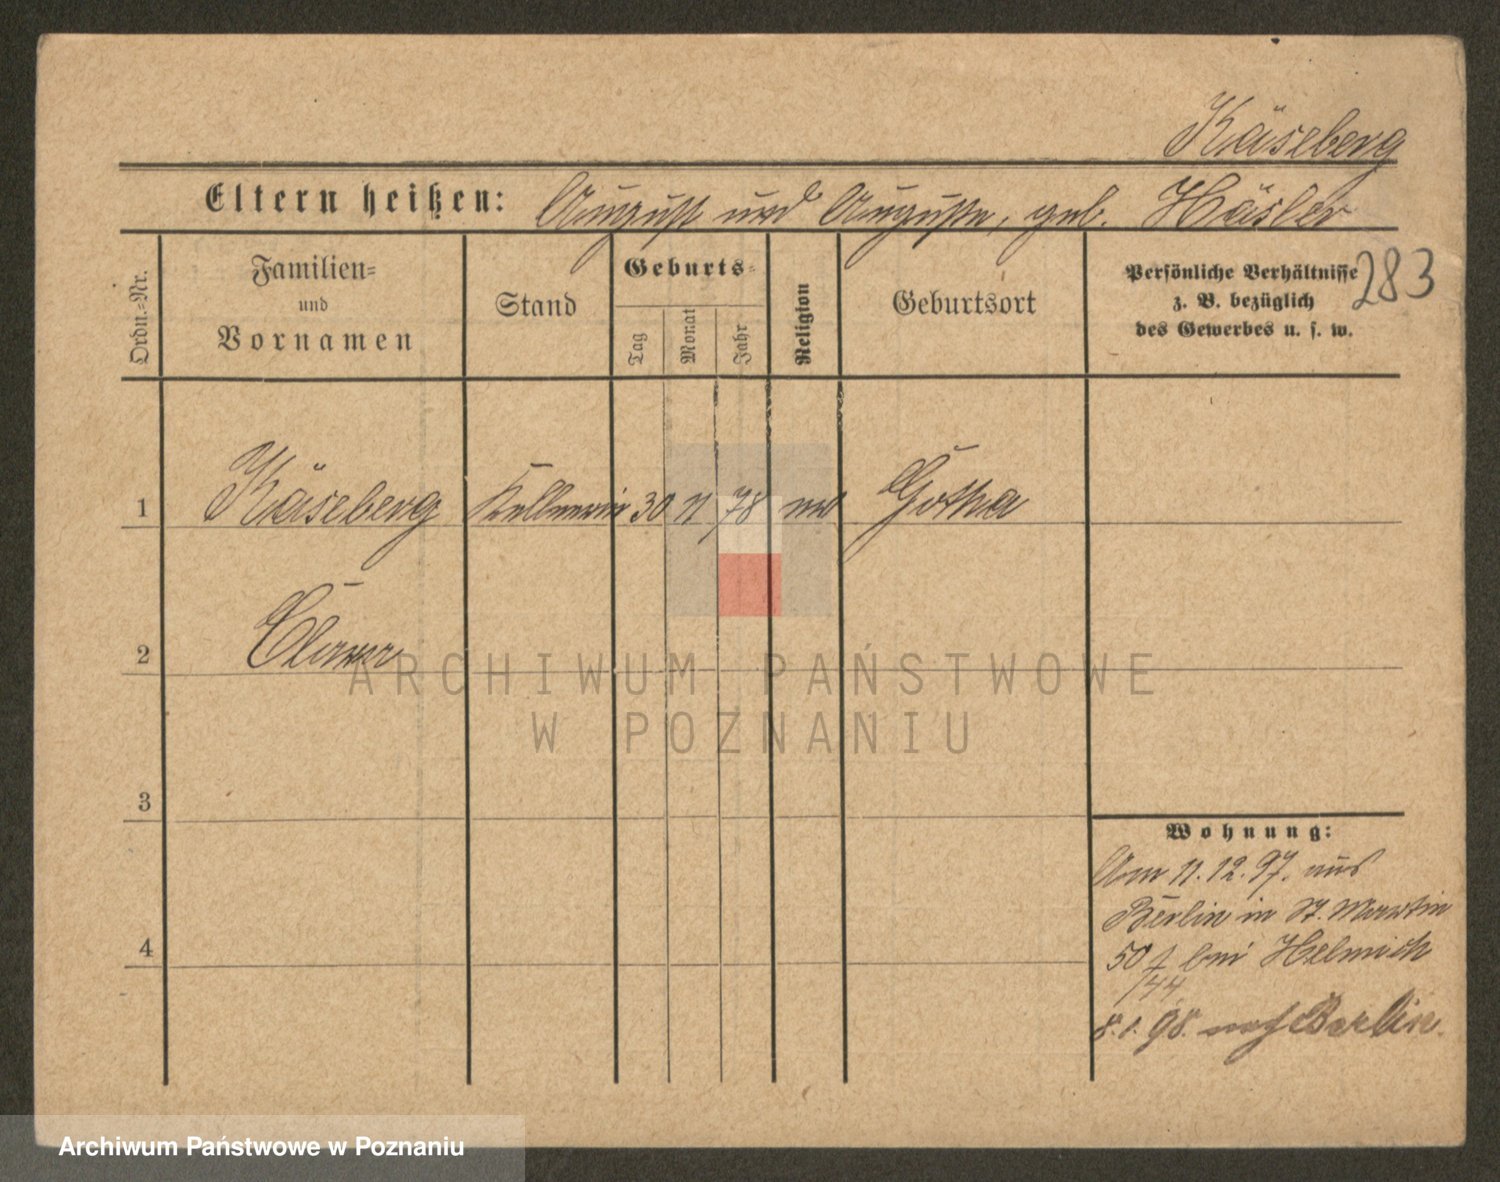 Käseberg
Eltern heißen: August und Auguste, geb. Häsler
283
Ordn.-Nr.
Familien-
und
Vornamen
Stand
Geburts-
Tag
Monat
Jahr
Religion
Geburtsort
Persönliche Verhältnisse
z. B. bezüglich
des Gewerbes u. s. w.
1 Käseberg Kellnerin 30 11 78 Gotha
2 Clara
ARCHIWUM PAŃSTWOWE
W POZNANIU
3
Wohnung:
Am 11.12.97. aus
Berlin in St. Martin
4
50 bei Helmich
/44
8.1.98. nach Berlin.
Archiwum Państwowe w Poznaniu